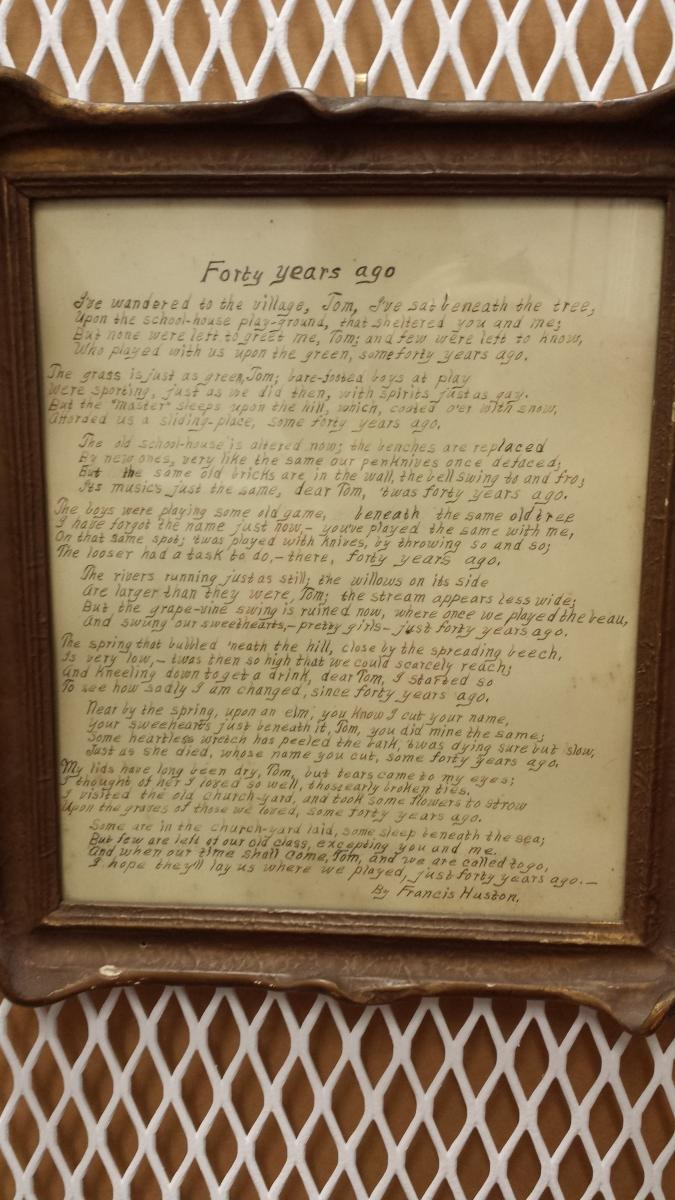 Forty years ago
I've wandered to the village, Tom, I've sat beneath the tree,
Upon the school-house play-ground, that sheltered you and me;
But none were left to greet me, Tom; and few were left to know,
Who played with us upon the green, some forty years ago.
The grass is just as green, Tom; bare-footed boys at play
Were sporting, just as we did then, with spirits just as gay.
But the "master" sleeps upon the hill, which, coated o'er with snow,
Afforded us a sliding-place, some forty years ago.
The old school-house is altered now; the benches are replaced
By new ones, very like the same our penknives once defaced;
But the same old bricks are in the wall, the bell swing to and fro;
Its music's just the same, dear Tom, 'twas forty years ago.
The boys were playing some old game, beneath the same old tree
I have forgot the name just now,- you've played the same with me,
On that same spot; 'twas played with knives, by throwing so and so;
The looser had a task to do,- there, forty years ago.
The rivers running just as still; the willows on its side
Are larger than they were, Tom; the stream appears less wide;
But the grape-vine swing is ruined now, where once we played the beau,
And swung our sweethearts,- pretty girls- just forty years ago.
The spring that bubbled 'neath the hill, close by the spreading beech,
Is very low,- 'twas then so high that we could scarcely reach;
And kneeling down to get a drink, dear Tom, I started so
To see how sadly I am changed, since forty years ago.
Near by the spring, upon an elm, you know I cut your name,
Your sweehearts just beneath it, Tom, you did mine the same;
Some heartless wretch has peeled the bark, 'twas dying sure but slow,
Just as she died, whose name you cut, some forty years ago.
My lids have long been dry, Tom, but tears came to my eyes;
I thought of her I loved so well, those early broken ties.
I visited the old church-yard, and took some flowers to strow
Upon the graves of those we loved, some forty years ago.
Some are in the church-yard laid, some sleep beneath the sea;
But few are left of our old class, excepting you and me.
And when our time shall come, Tom, and we are called to go,
I hope they'll lay us where we played, just forty years ago.—
By Francis Huston.